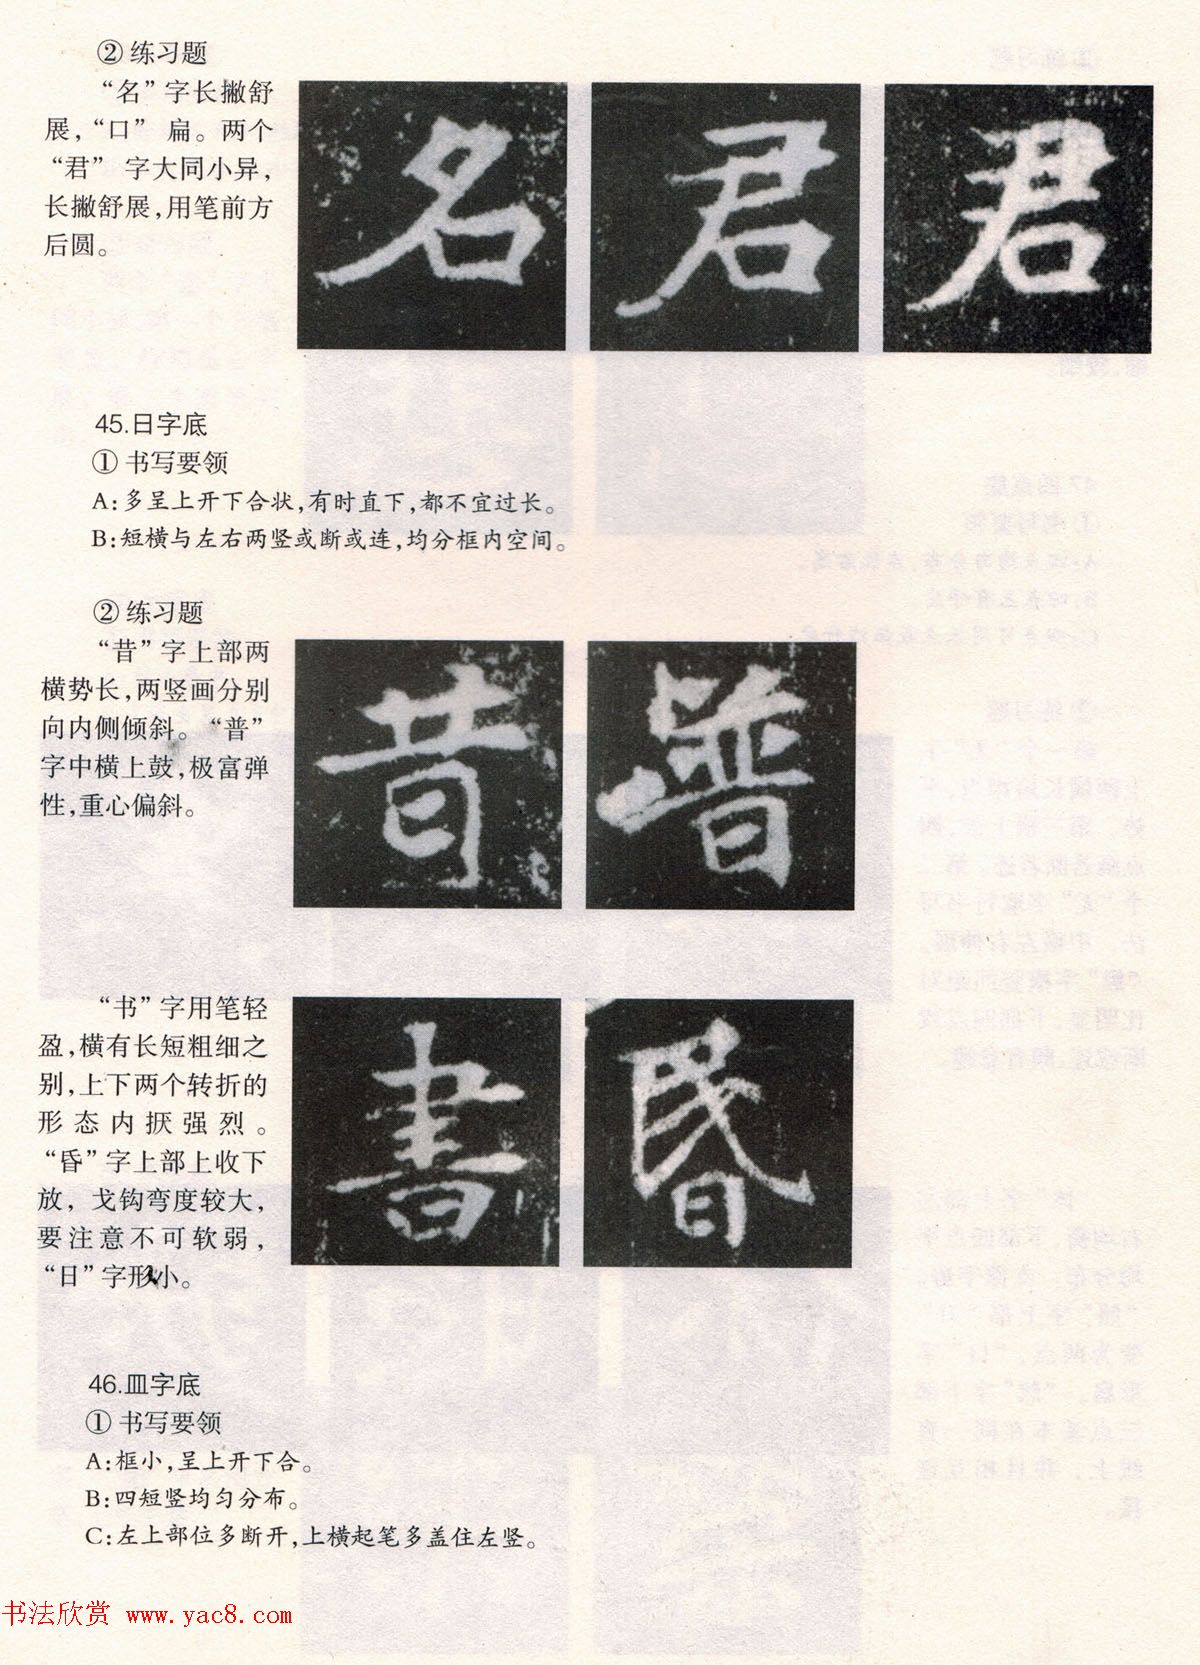 ② 练习题
“名”字长撇舒
展，“口” 扁。两个
“君” 字大同小异，
长撇舒展，用笔前方
后圆。
名 君 君
45.日字底
① 书写要领
A：多呈上开下合状，有时直下，都不宜过长。
B：短横与左右两竖或断或连，均分框内空间。
② 练习题
“昔”字上部两
横势长，两竖画分别
向内侧倾斜。“普”
字中横上鼓，极富弹
性，重心偏斜。
昔 普
“书”字用笔轻
盈，横有长短粗细之
别，上下两个转折的
形态内抧强烈。
“昏”字上部上收下
放，戈钩弯度较大，
要注意不可软弱，
“日”字形小。
書 昬
46.皿字底
① 书写要领
A：框小，呈上开下合。
B：四短竖均匀分布。
C：左上部位多断开，上横起笔多盖住左竖。
书法欣赏 www.yac8.com